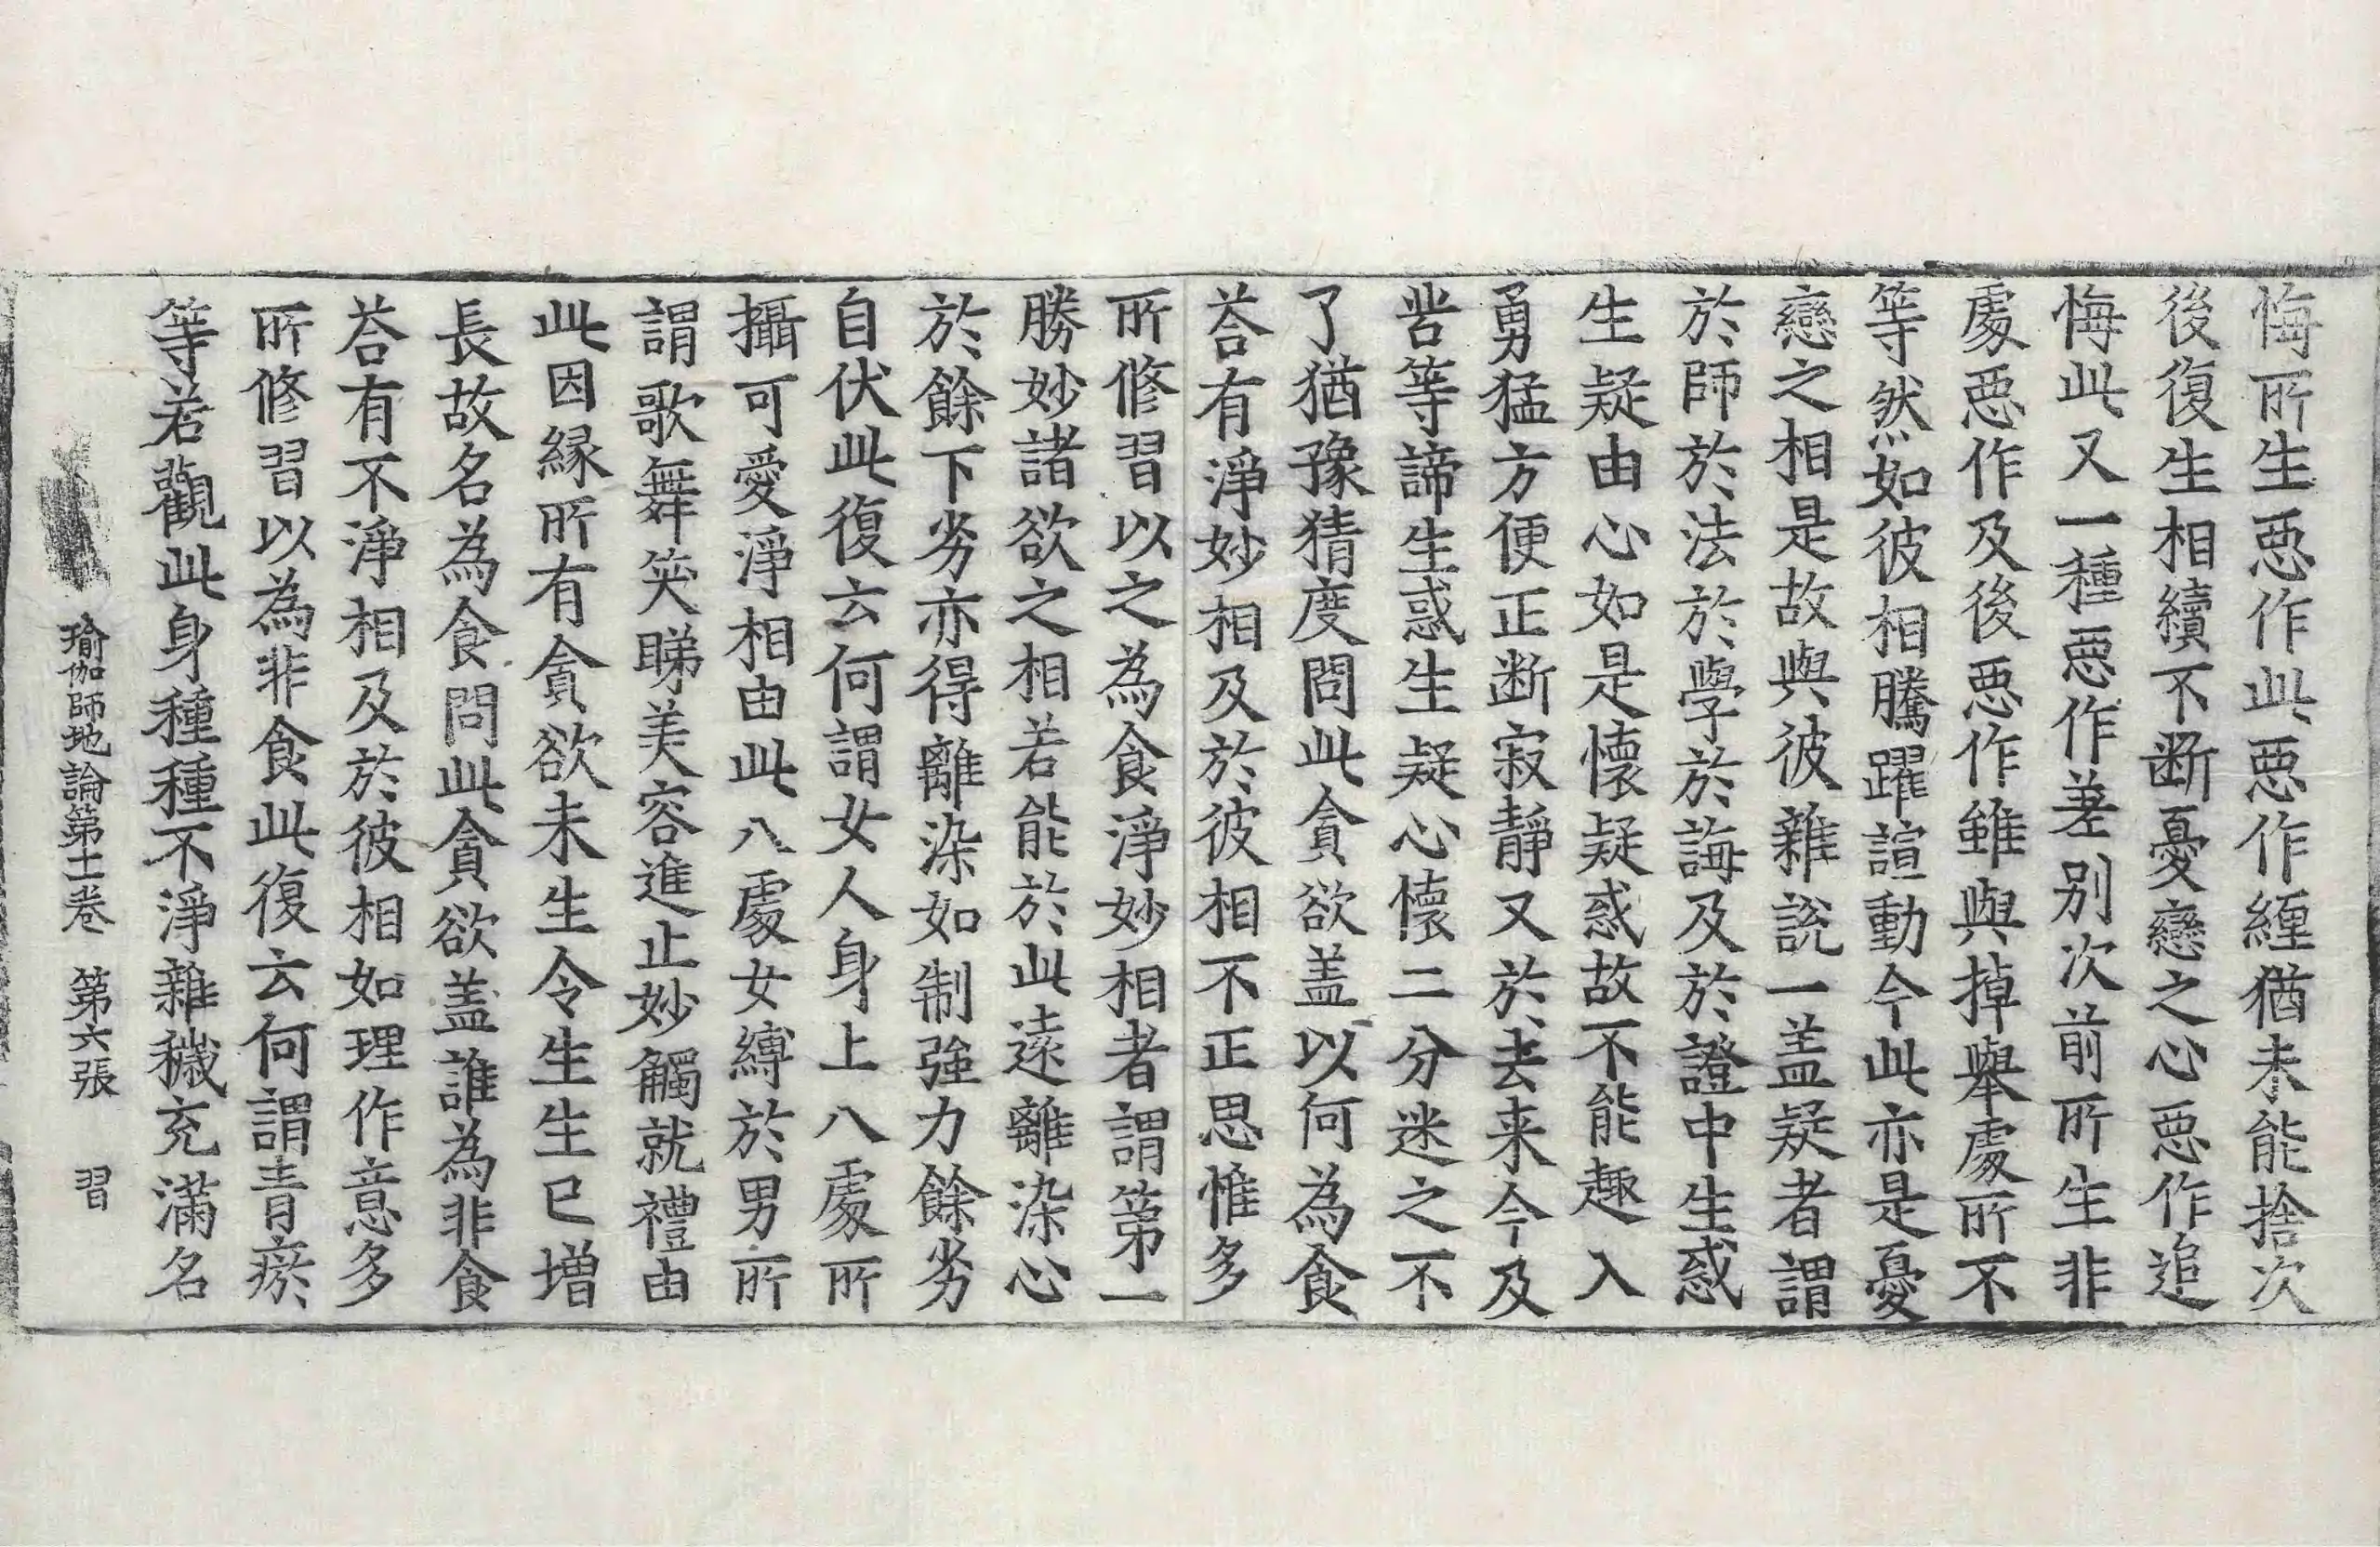 悔所生惡作此惡作纏猶未能捨次
後復生相續不断憂戀之心惡作追
悔此又一種惡作差别次前所生非
處惡作及後惡作雖與掉舉處所不
等然如彼相騰躍諠動今此亦是憂
戀之相是故與彼雜説一盖疑者謂
於師於法於學於誨及於證中生惑
生疑由心如是懷疑惑故不能趣入
勇猛方便正断寂靜又於去来今及
苦等諦生惑生疑心懷二分迷之不
了猶豫猜度問此貪欲盖以何為食
荅有淨妙相及於彼相不正思惟多
所修習以之為食淨妙相者謂第一
勝妙諸欲之相若能於此遠離染心
於餘下劣亦得離染如制強力餘劣
自伏此復云何謂女人身上八處所
攝可愛淨相由此八處女縛於男所
謂歌舞笑睇美容進止妙觸就禮由
此因縁所有貪欲未生令生生已增
長故名為食問此貪欲盖誰為非食
荅有不淨相及於彼相如理作意多
所修習以為非食此復云何謂青瘀
等若觀此身種種不淨雜穢充滿名
瑜伽師地論第十一卷 第六張 習